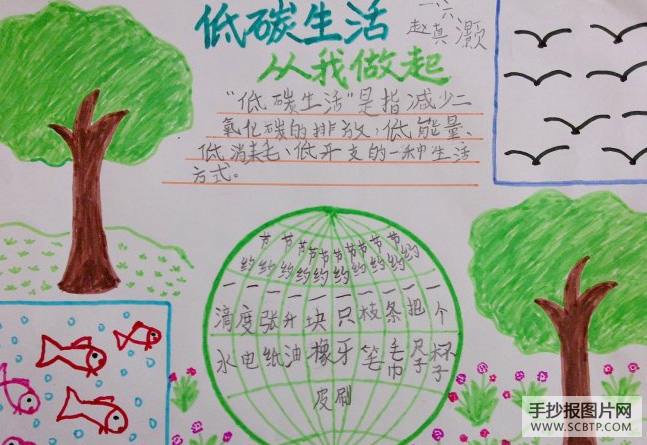 低碳生活
一六
赵真灏
从我做起
"低碳生活"是指减少二
氧化碳的排放,低能量、
低消耗、低开支的一种生活
方式。
节约一滴水
节约一度电
节约一张纸
节约一升油
节约一块橡皮
节约一只牙刷
节约一枝笔
节约一条毛巾
节约一把尺子
节约一个杯子
手抄报图片网
WWW.SCBTP.COM